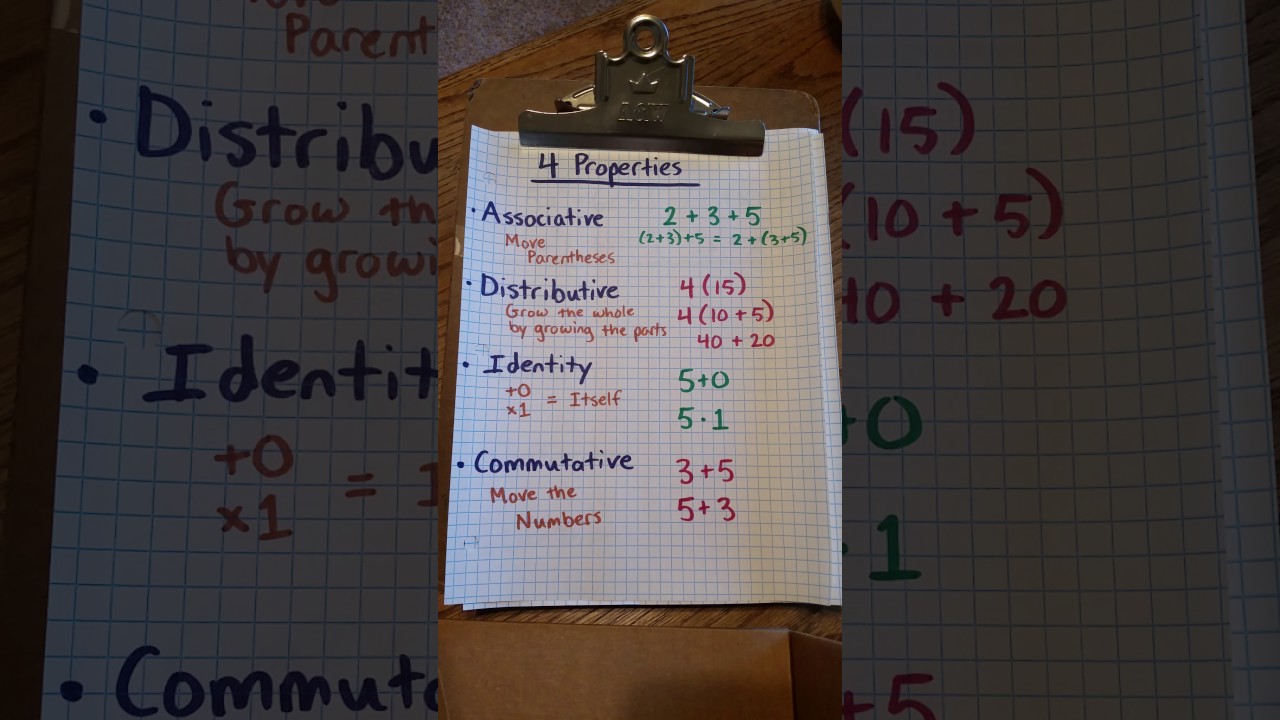 ACW
4 Properties
• Associative 2 + 3 + 5
Move (2+3)+5 = 2+(3+5)
Parentheses
• Distributive 4(15)
Grow the whole 4(10 + 5)
by growing the parts 40 + 20
• Identity 5+0
+0
×1 = Itself
5 · 1
• Commutative 3+5
Move the
Numbers 5+3